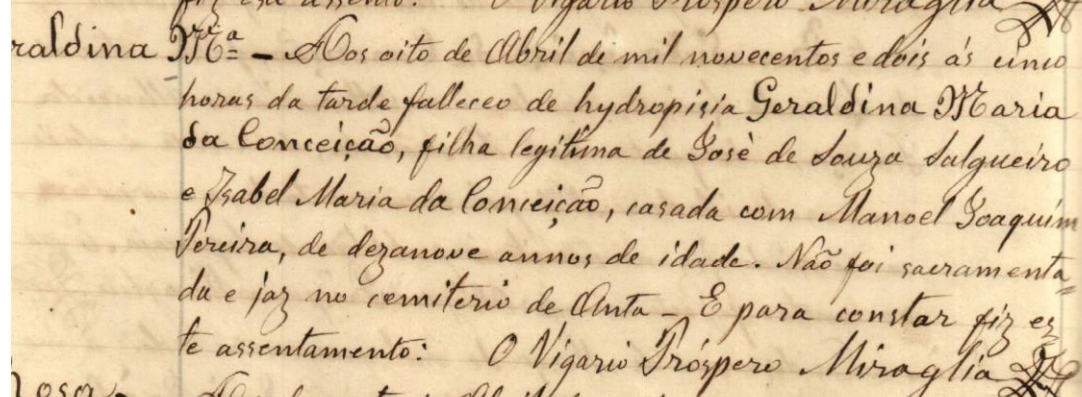 fiz este assento. O Vigario Próspero Miraglia
raldina Mª= - Aos oito de Abril de mil novecentos e dois ás cinco
horas da tarde falleceo de hydropisia Geraldina Maria
da Conceição, filha legitima de José de Souza Salgueiro
e Isabel Maria da Conceição, casada com Manoel Joaquim
Pereira, de dezanove annos de idade. Não foi sacramenta=
da e jaz no cemiterio de Anta - E para constar fiz es=
te assentamento: O Vigario Próspero Miraglia
Rosa